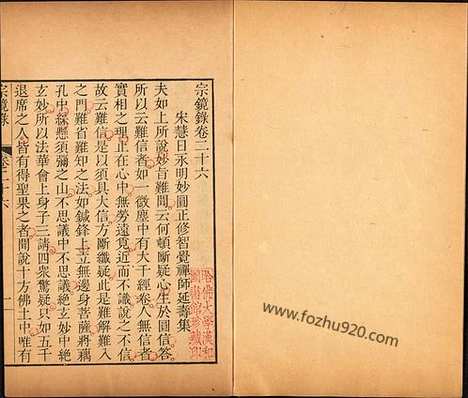 宗鏡錄卷二十六
宋慧日永明妙圓正修智覺禪師延壽集
夫如上所說妙旨難聞云何頓斷疑心生於圓信答
所以云難信者如一微塵中有大千經卷人無信者
實相之理止在心中無勞遠覓近而不識說之不信
故云難信是以須具大信方斷纖疑此是難解難入
之門難省難知之法如鍼鋒上立無邊身菩薩將藕
孔中絲懸須彌之山不思議中不思議絕玄妙中絕
玄妙所以法華會上身子三請四眾驚疑只如五千
退席之人皆有得聖果之者聞說十方佛土中唯有
宗鏡錄 卷二十六 一
www.fozhu920.com